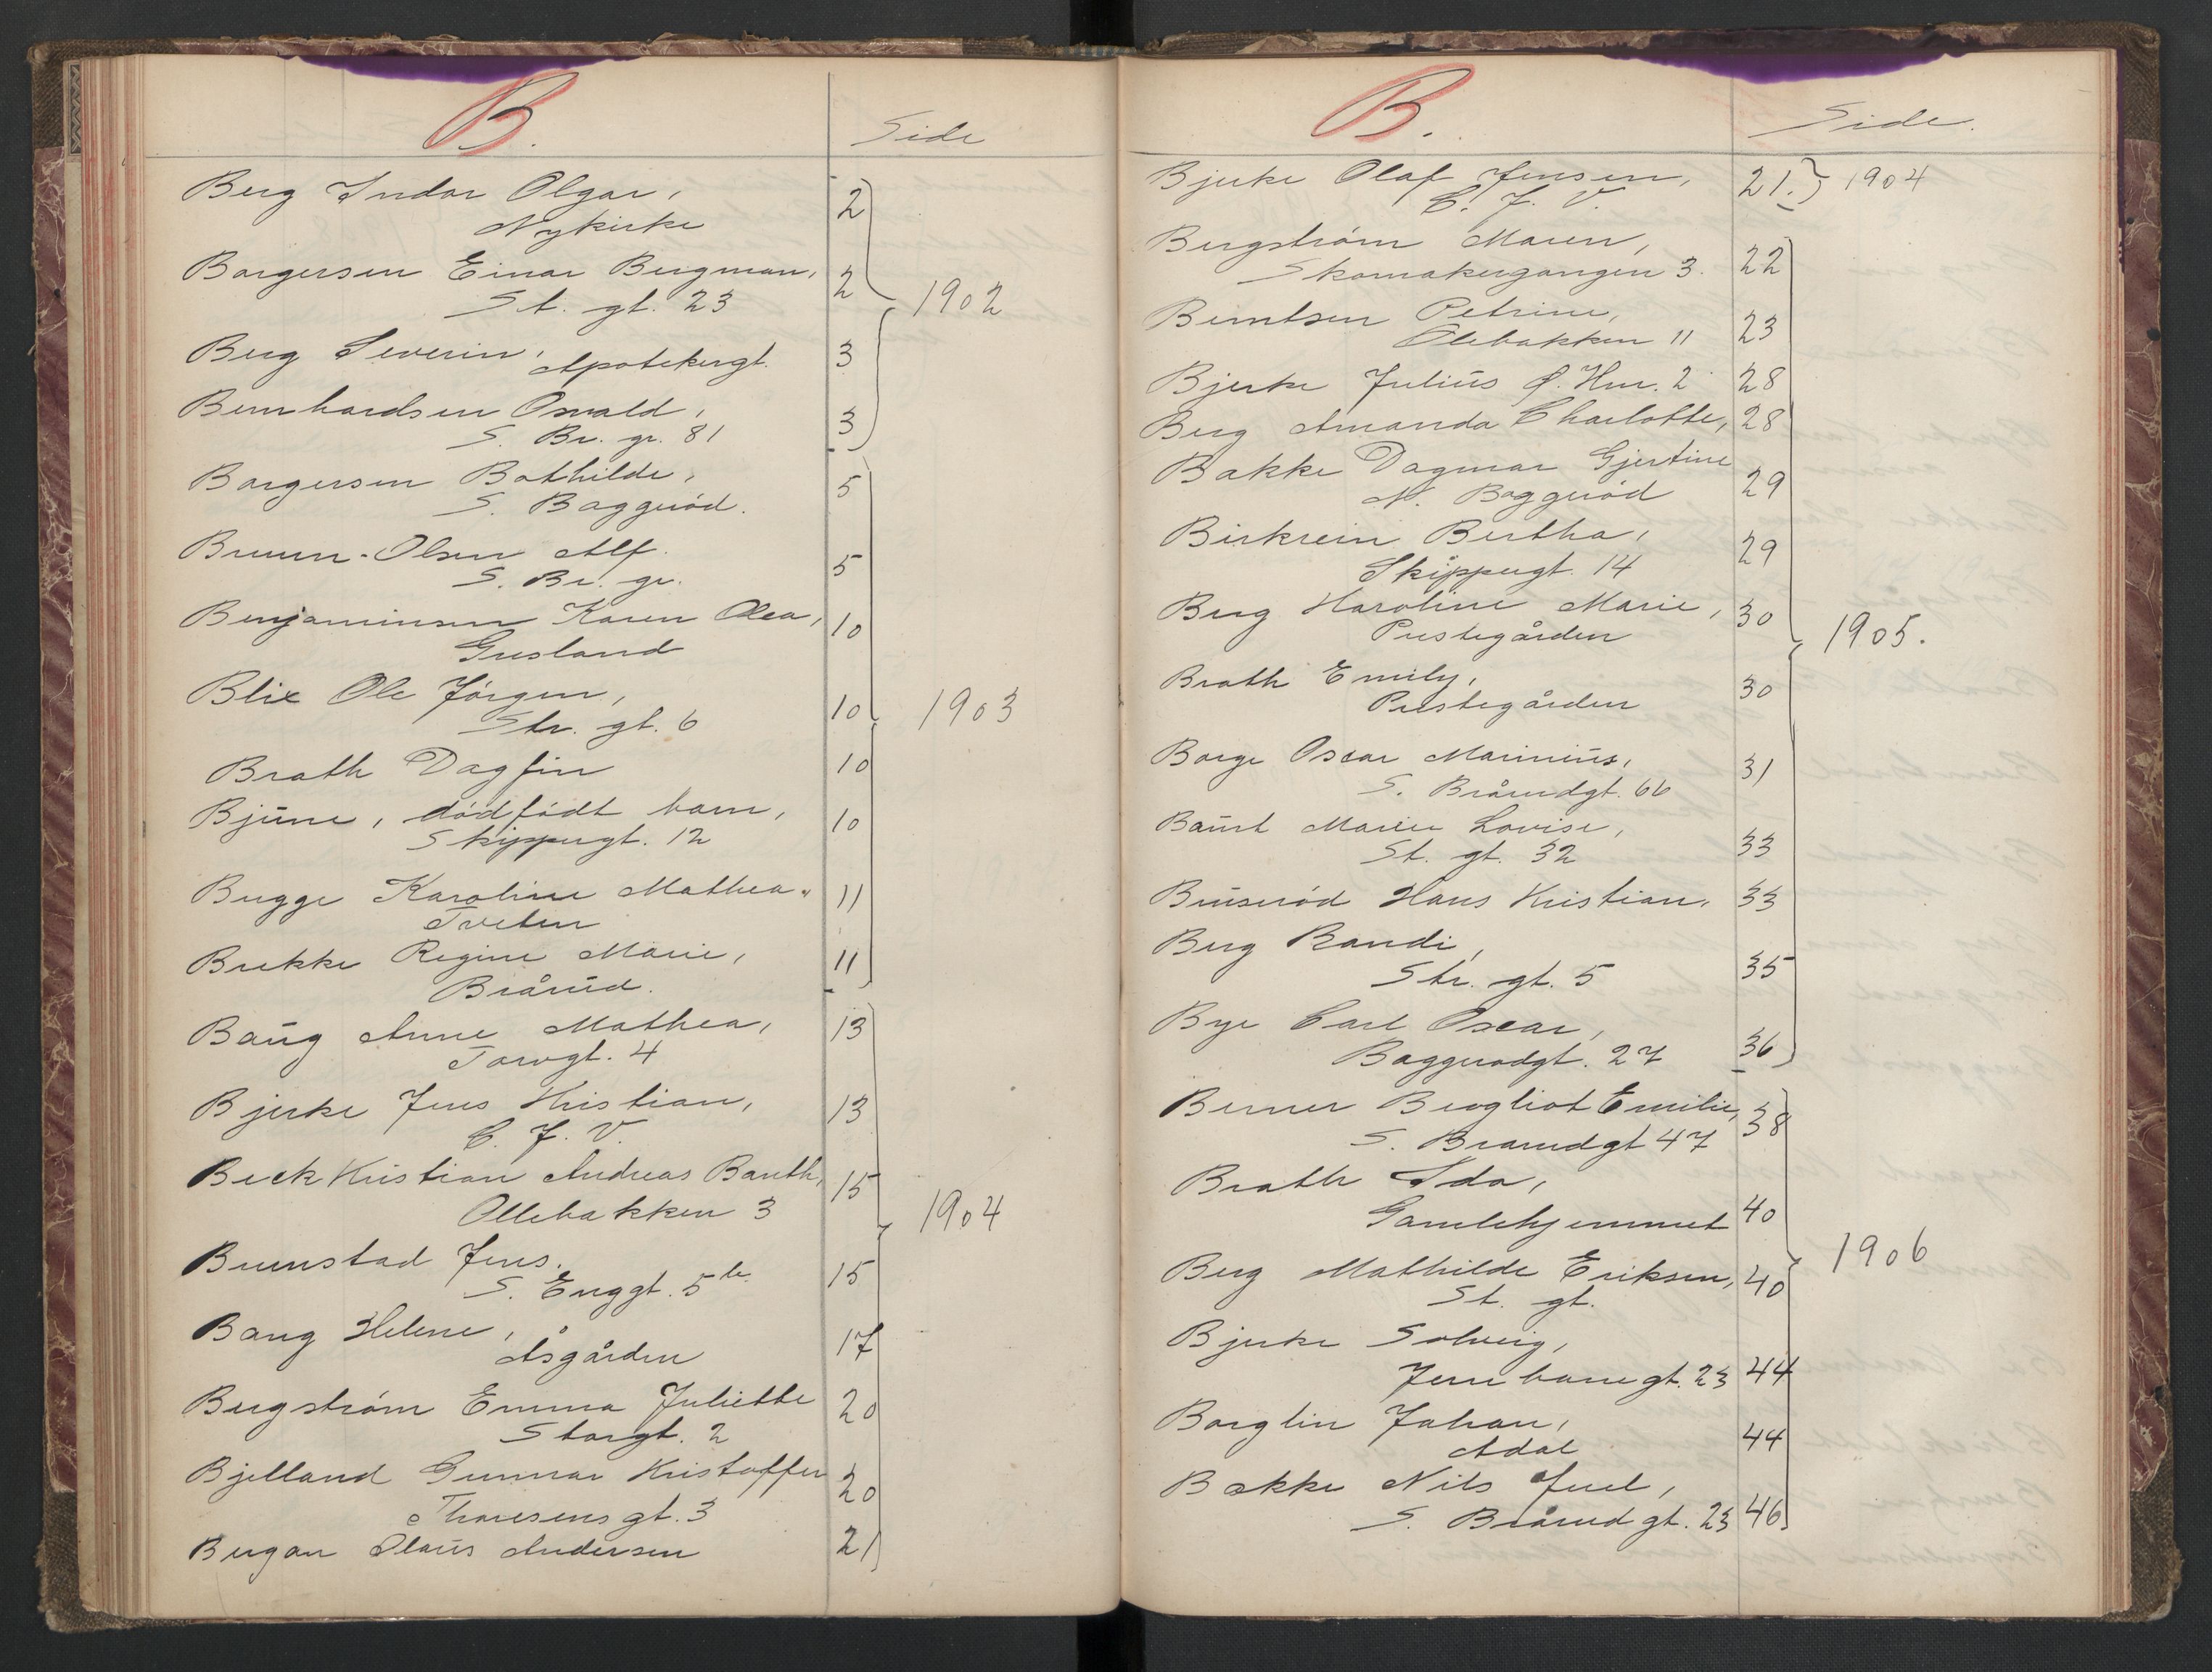 B. Side
Berg Indar Olgar, 2
Nykirke
Borgersen Einar Bergman, 2
St. gt. 23
1902
Berg Severin, Apotekergt. 3
Bernhardsen Osvald, 3
S. Br. gr. 81
Borgersen Bothilde, 5
S. Baggeröd.
Bruun-Olsen Alf. 5
S. Br. gr.
Benjaminsen Karen Olea, 10
Gresland
Blix Ole Jörgen, 10
Str. gt. 6
1903
Brath Dagfin 10
Bjune, dödfödt barn, 10
Skippergt. 12
Bugge Karoline Mathea, 11
Tveten
Brekke Regine Marie, 11
Brårud.
Baug Anne Mathea, 13
Torvgt. 4
Bjerke Jens Kristian, 13
C. J. V.
Beck Kristian Andreas Barth, 15
Ollebakken 3
1904
Buerstad Jens. 15
S. Enggt. 5 b
Bang Helene, 17
Åsgården
Bergström Emma Juliette 20
Storgt. 2
Bjelland Gunnar Kristoffer 20
Thoresens gt. 3
Bergan Olaus Andersen 21
B. Side.
Bjerke Olaf Jensen, 21. 1904
C. J. V.
Bergström Maren, 22
Skomakergangen 3.
Berntsen Petrine, 23
Olebakken 11
Bjerke Julius Ø. Hvr. 2 28
Berg Amanda Charlotte, 28
Bakke Dagmar Gjertine 29
N. Baggeröd
Birkrein Bertha, 29
Skippergt. 14
Berg Karoline Marie, 30
Prestegården
1905.
Brath Emily, 30
Prestegården
Borge Oscar Marinius, 31
S. Brårudgt. 66
Baust Marie Lovise, 33
St. gt. 32
Buseröd Hans Kristian, 33
Berg Randi, 35
Str. gt. 5
Bye Carl Oscar, 36
Baggerodgt. 27
Berner Bergliot Emilie, 38
S. Brarudgt 47
Brath Ida, 40
Gamlehjemmet
1906
Berg Mathilde Eriksen, 40
St. gt.
Bjerke Solveig, 44
Jernbanegt. 23
Borglin Johan, 44
Adal
Bakke Nils Juel, 46
S. Brårud gt. 23